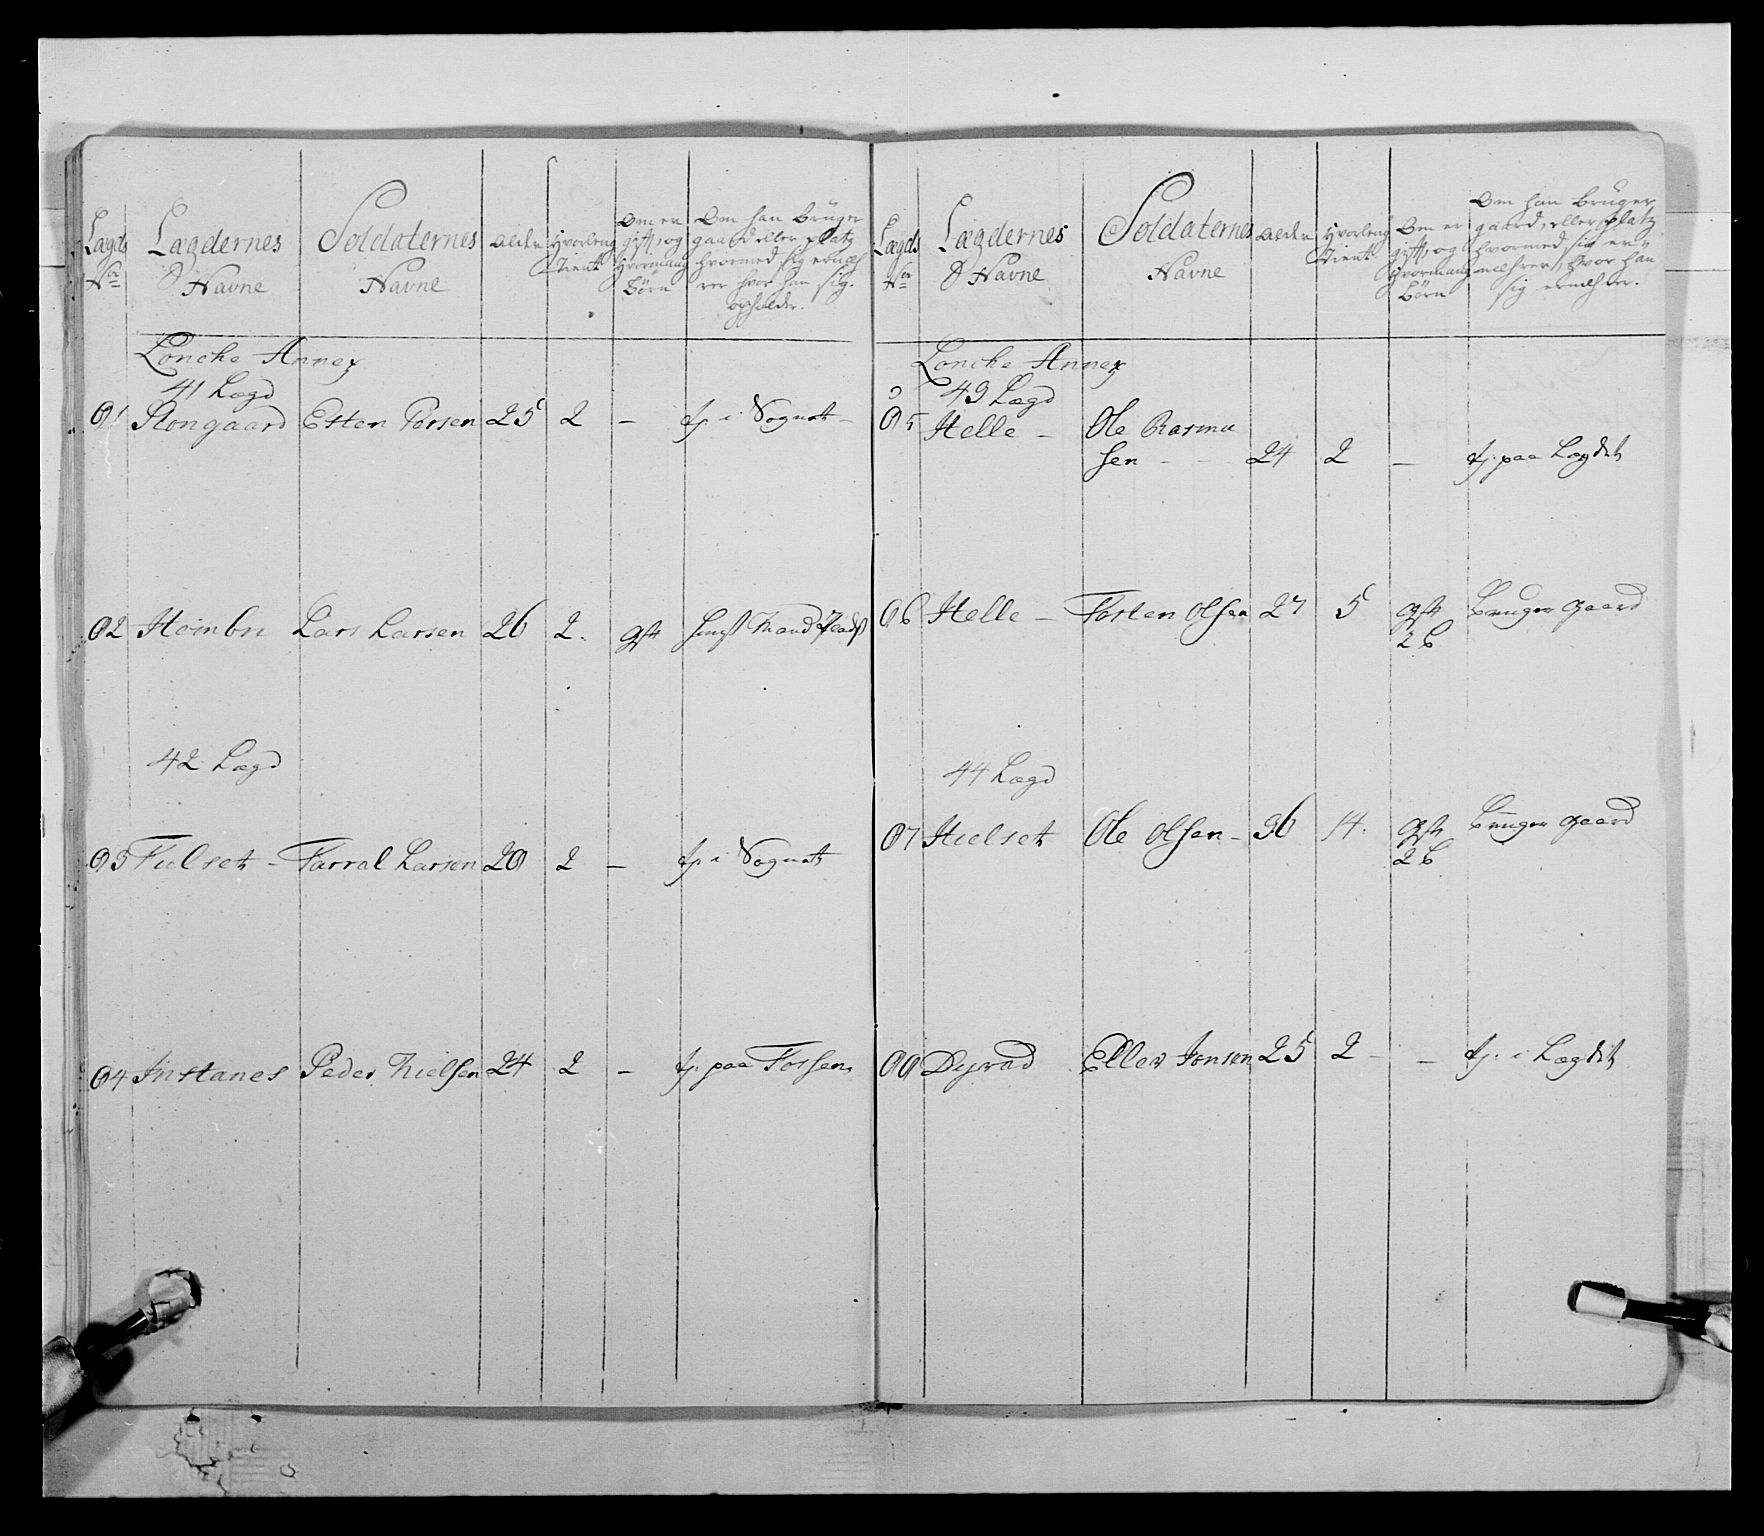 Lagds
No
Lægdernes
Navne
Soldaternes
Navne
Alder
Hvorleng
Tient
Om er
gift, og
Hvormang
börn
Om han bruger
gaard eller platz
hvormed sig ernæh
rer hvor han sig
opholder.
Loncke Annex
41 Lægd
81 Stongaard Esten Torsen 25 2 — tj. i Sognet —
82 Heimbre Lars Larsen 26 2. gft
42 Lægd
83 Tielset - Tarral Larsen 20 2 — tj. i Sognet
84 Instanes Peder Nielsen 24 2 — tj. paa Forsen
Lagds
No
Lægdernes
Navne
Soldaternes
Navne
Alder
Hvorleng
Tient
Om er
gift, og
Hvormang
Börn
Om han bruger
gaard, eller platz
hvormed sig er=
næhrer, hvor han
sig ernæhrer.
Loncke Annex
43 Lægd
85 Helle — Ole Rasmu
sen - - 24 2 — tj. paa Lægdet
86 Helle — Torsten Olsen 27 5 gft Bruger gaard
2 B
44 Lægd
87 Hielset Ole Olsen - 36 14. gft Bruger gaard
2 B
88 Dyrød Ellev Jonsen 25 2 - — tj. i Lægdet